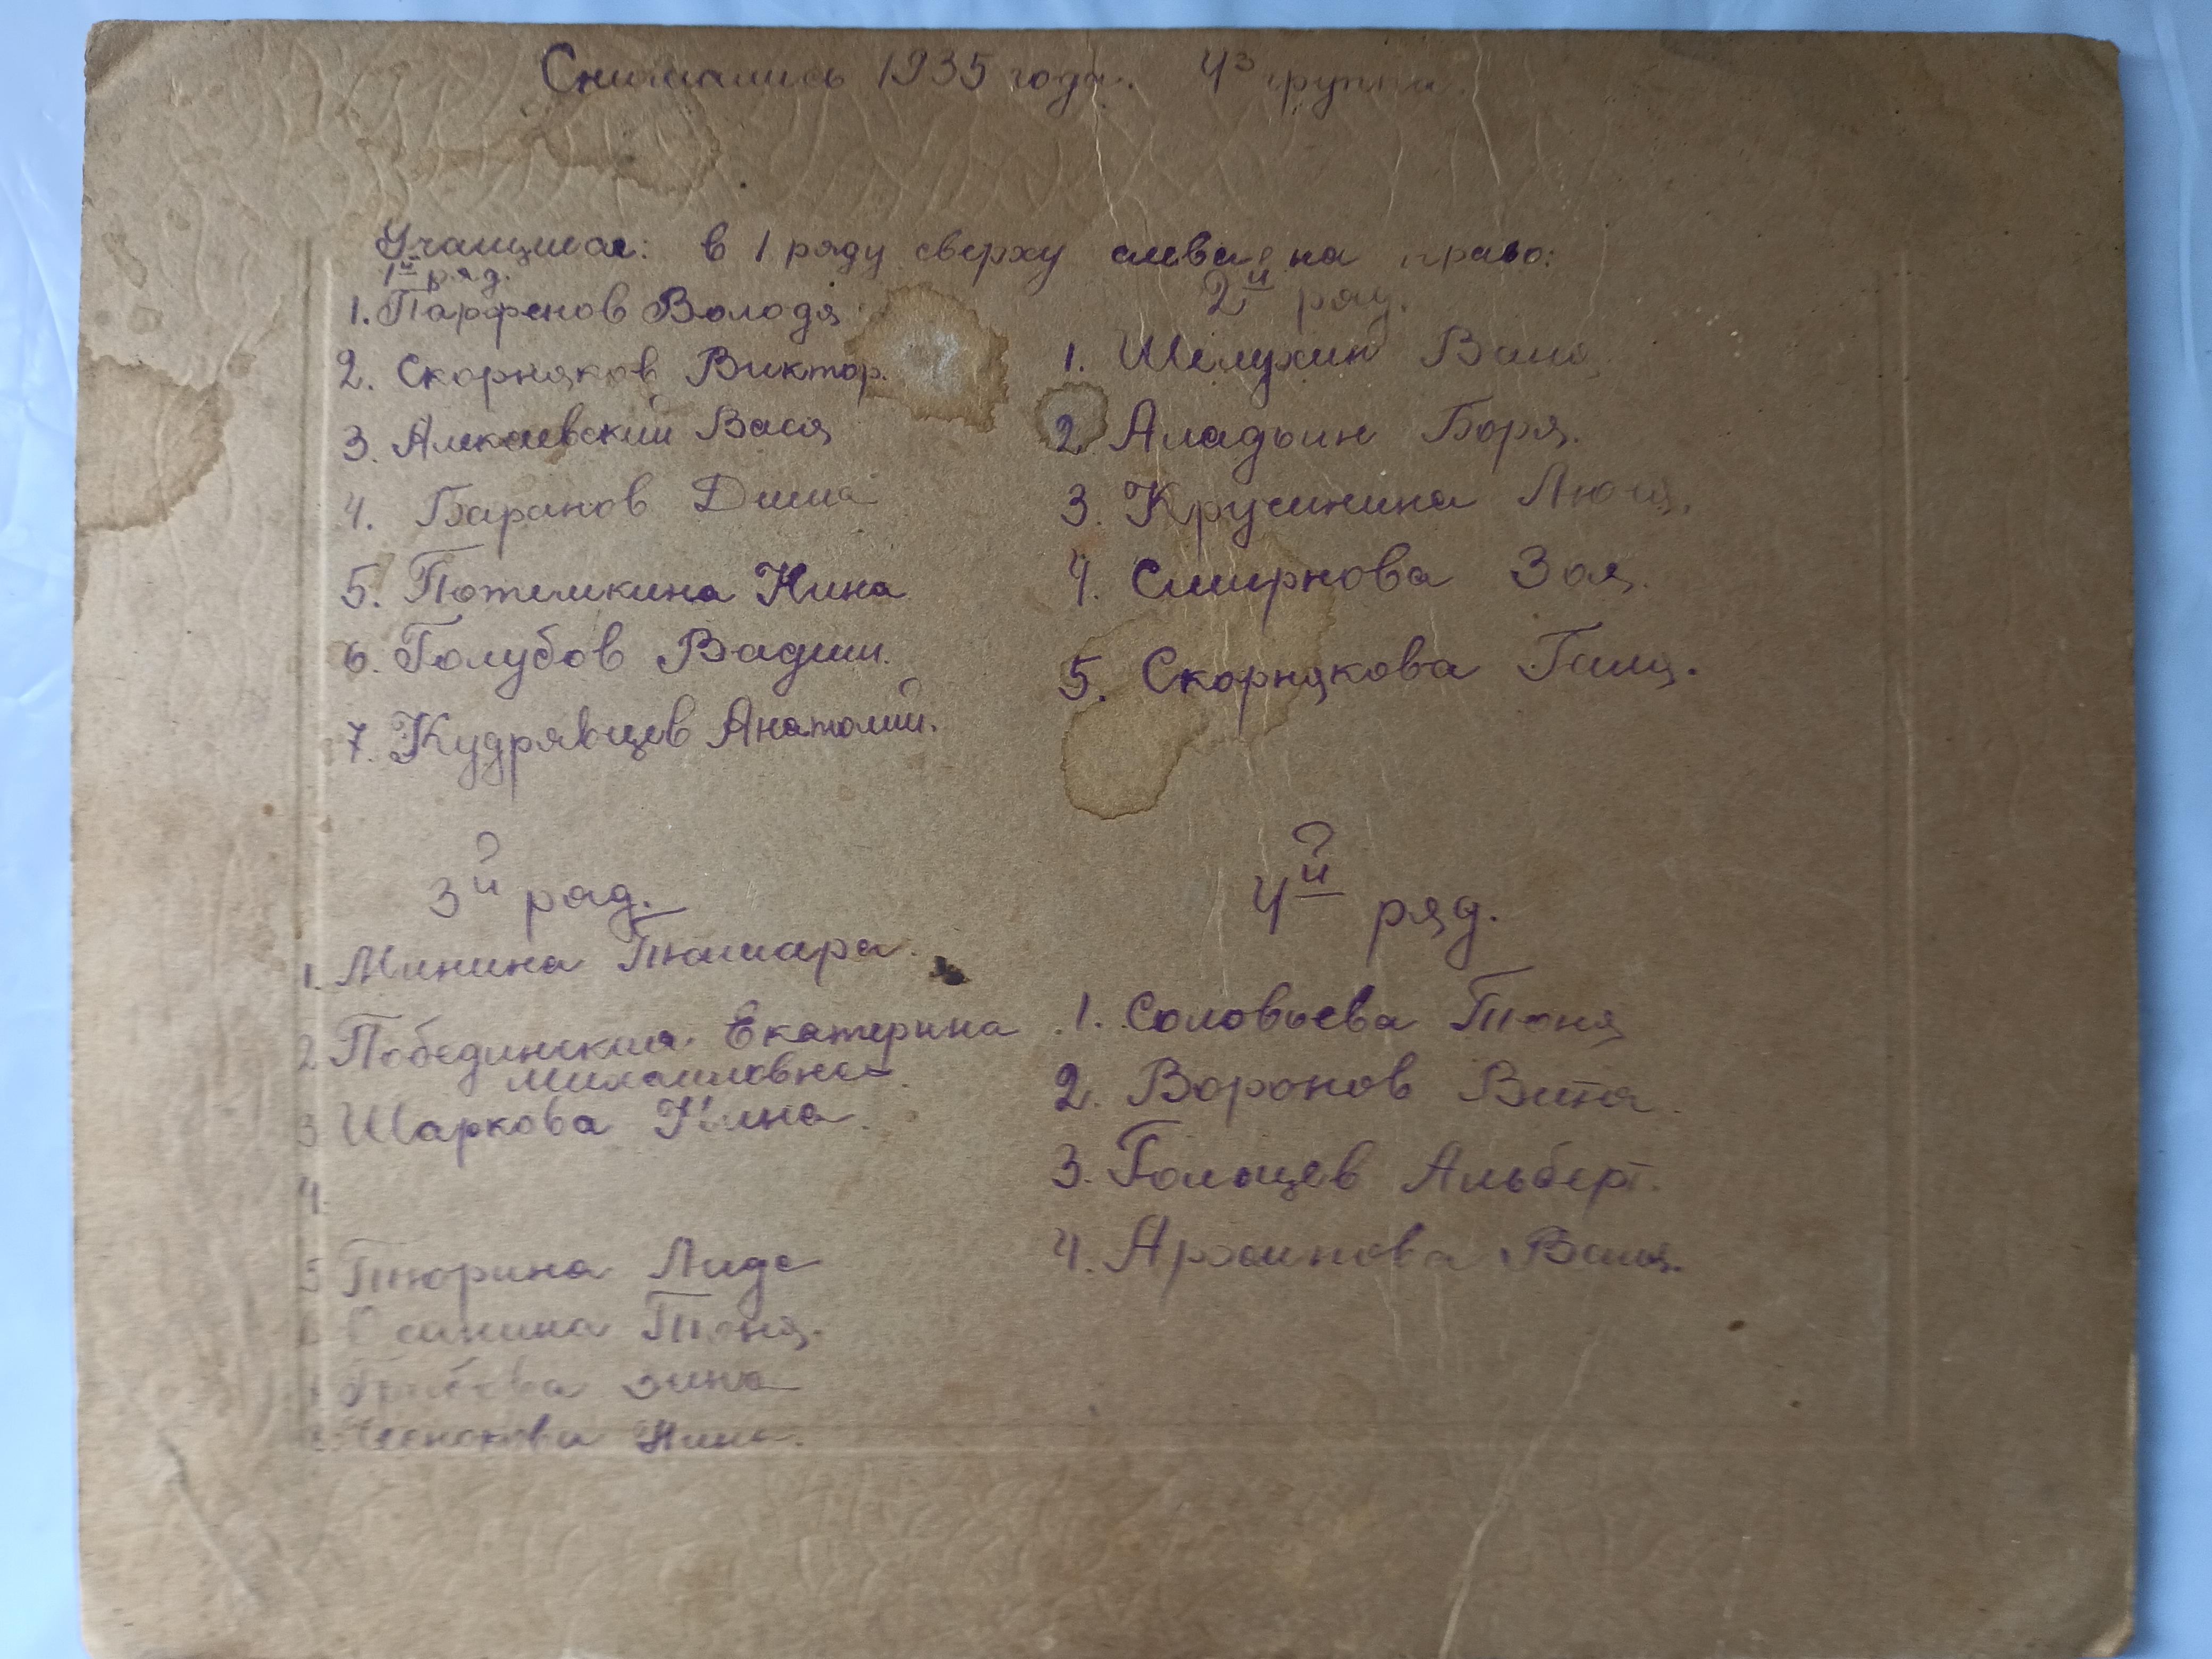 Снимались 1935 года. 4з группа.
Учащиеся: в 1 ряду сверху слева на право:
1й ряд.
1. Парфенов Володя
2. Скорняков Виктор.
3. Алякаевский Вася
4. Баранов Дима
5. Потемкина Нина
6. Голубов Вадим.
7. Кудрявцев Анатолий.
2й ряд.
1. Шелухин Ваня
2. Аладьин Боря.
3. Крусинина Люся.
4. Смирнова Зоя.
5. Скорнякова Галя.
3й ряд.
1. Минина Тамара.
2 Побединская Екатерина
Михайловна.
3 Шаркова Нина.
4.
5 Тюрина Лида
Осинина Тоня.
Зина
Нина.
4й ряд.
1. Соловьева Тоня
2. Воронов Витя.
3. Гольцев Альберт.
4. Архипова Валя.